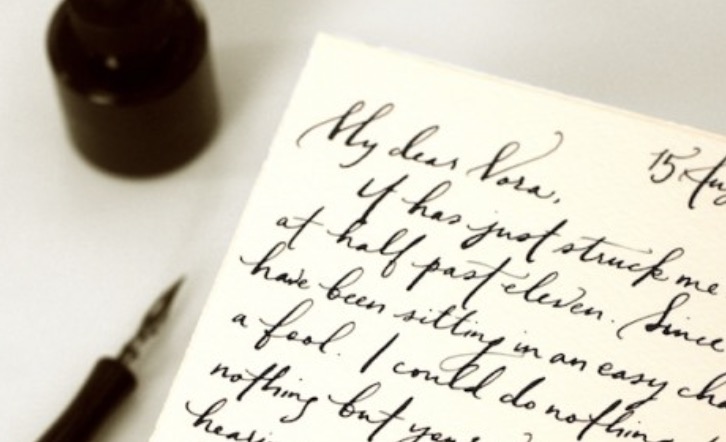 My dear Nora,
15 Aug
It has just struck me
at half past eleven. Since
have been sitting in an easy cha
a fool. I could do nothing
nothing but you
heari